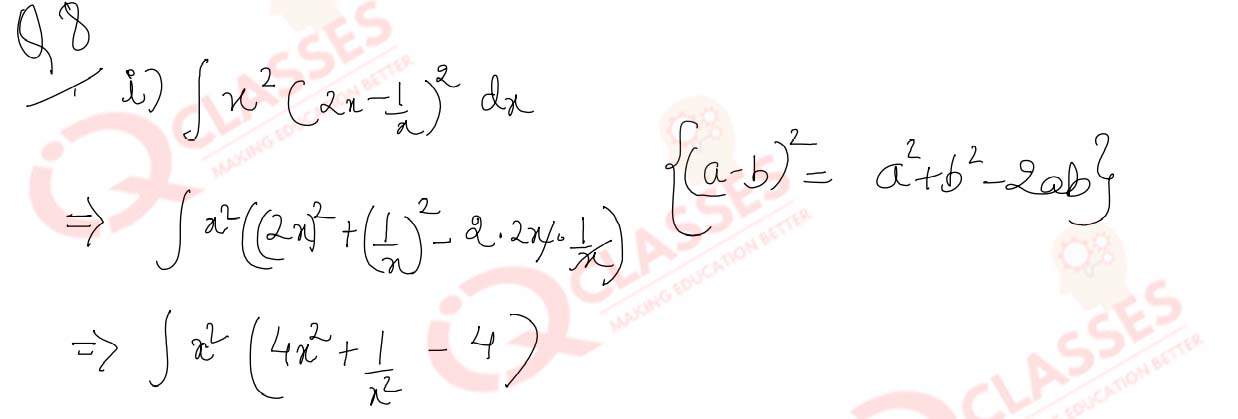 Q8
i) ∫ x² (2x - 1/x)² dx
{(a-b)² = a² + b² - 2ab}
⇒ ∫ x² ((2x)² + (1/x)² - 2 · 2x · 1/x)
⇒ ∫ x² (4x² + 1/x² - 4)
IQ CLASSES
MAKING EDUCATION BETTER
IQ CLASSES
MAKING EDUCATION BETTER
CLASSES
EDUCATION BETTER